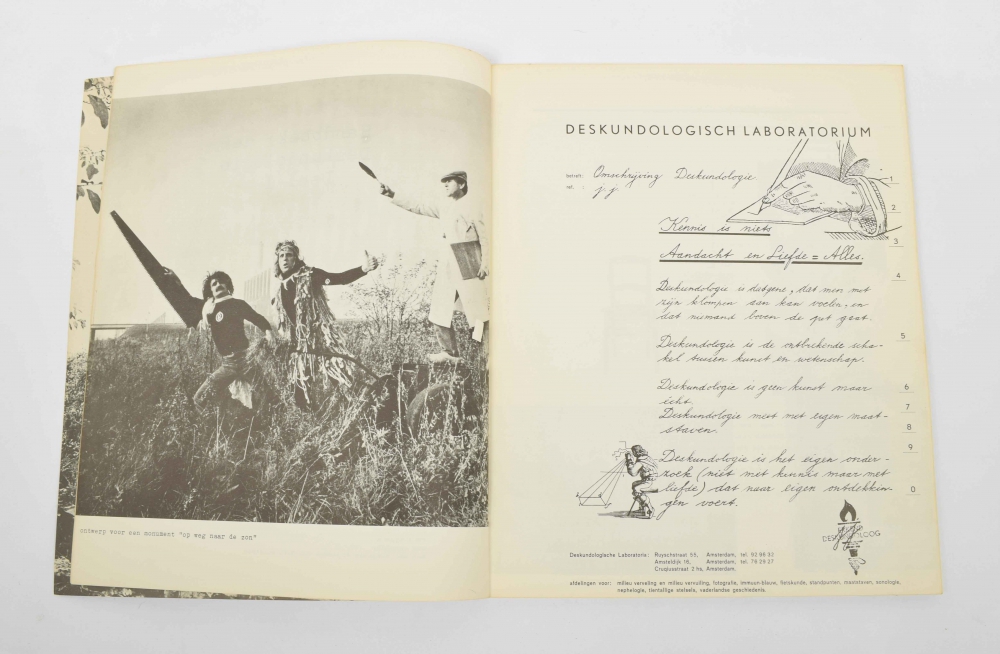 ontwerp voor een monument "op weg naar de zon"
DESKUNDOLOGISCH LABORATORIUM
betreft: Omschrijving Deskundologie
ref. : j.j.
1
2
Kennis is niets
3
Aandacht en Liefde = Alles.
4
Deskundologie is datgene, dat men met
zijn klompen aan kan voelen, en
dat niemand boven de pet gaat.
5
Deskundologie is de ontbrekende scha-
kel tussen kunst en wetenschap.
6
Deskundologie is geen kunst maar
icht.
7
Deskundologie meet met eigen maat-
8
staven.
9
Deskundologie is het eigen onder-
zoek (niet met kennis maar met
liefde) dat naar eigen ontdekkin-
0
gen voert.
DESKUNDOLOOG
Deskundologische Laboratoria: Ruyschstraat 55, Amsterdam, tel.
Amsteldijk 16, Amsterdam, tel.
Cruquiusstraat 2 hs, Amsterdam.
afdelingen voor: milieu verveling en milieu vervuiling, fotografie, immuun-blauw, fietskunde, standpunten, maatstaven, sonologie,
nephologie, tientallige stelsels, vaderlandse geschiedenis.